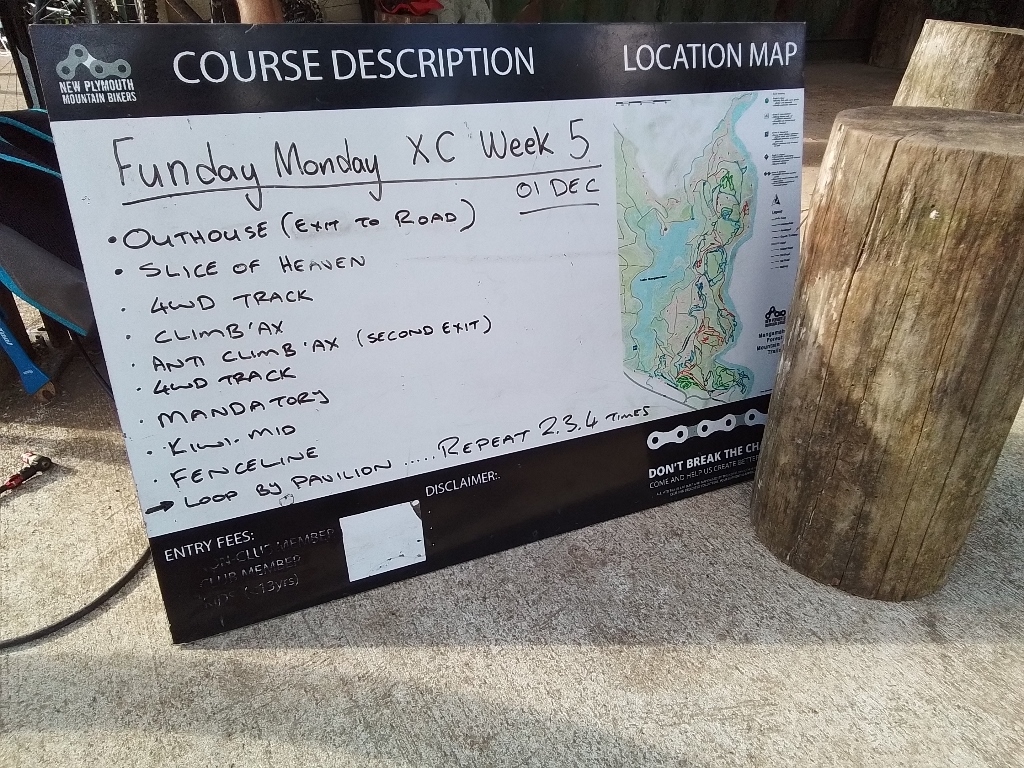 NEW PLYMOUTH
MOUNTAIN BIKERS
COURSE DESCRIPTION
LOCATION MAP
Funday Monday XC Week 5
01 DEC
• OUTHOUSE (EXIT TO ROAD)
• SLICE OF HEAVEN
· 4WD TRACK
· CLIMB'AX
· ANTI CLIMB'AX (SECOND EXIT)
· 4WD TRACK
· MANDATORY
· KIWI-MID
· FENCELINE
→ LOOP BY PAVILION ..... REPEAT 2.3.4 TIMES
ENTRY FEES:
NON-CLUB MEMBER
CLUB MEMBER
DISCLAIMER:
DON'T BREAK THE
COME AND HELP US CREATE